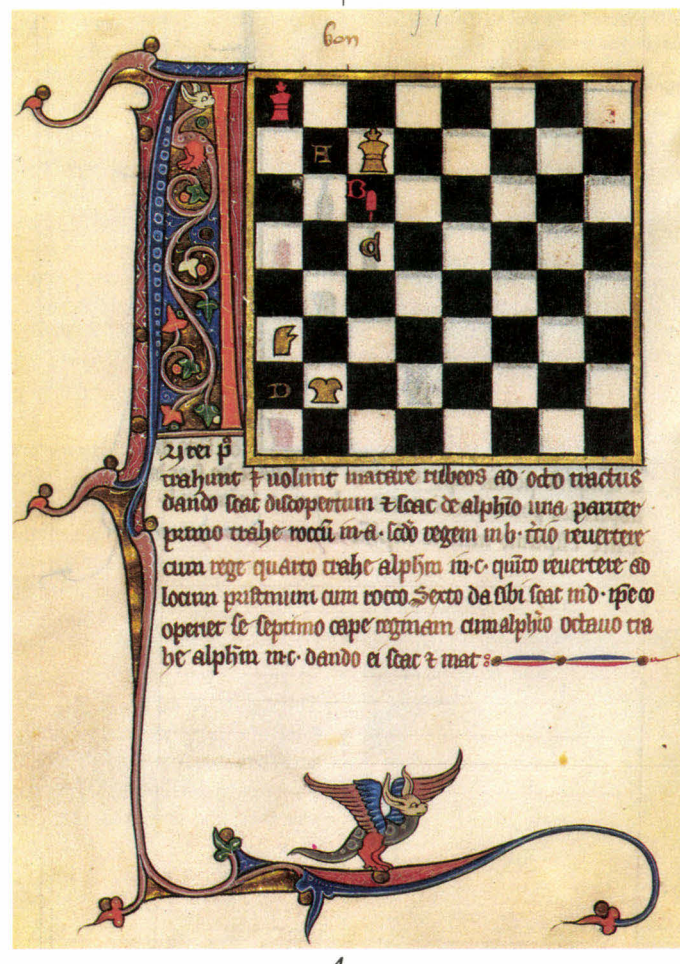 bon
A
B
D
trahunt ⁊ uolunt matare rubeos ad octo tractus
dando scac discopertum ⁊ scac de alphīo una pariter
primo trahe roccū in·a· scdo regem in b· tcio reuertere
cum rege quarto trahe alphm in·c· quīto reuertere ad
locum pristinum cum rocco Sexto da sibi scac in d· ipe co
operiet se septimo cape reginam cum alphīo octauo tra
he alphm in·c· dando ei scac ⁊ mat